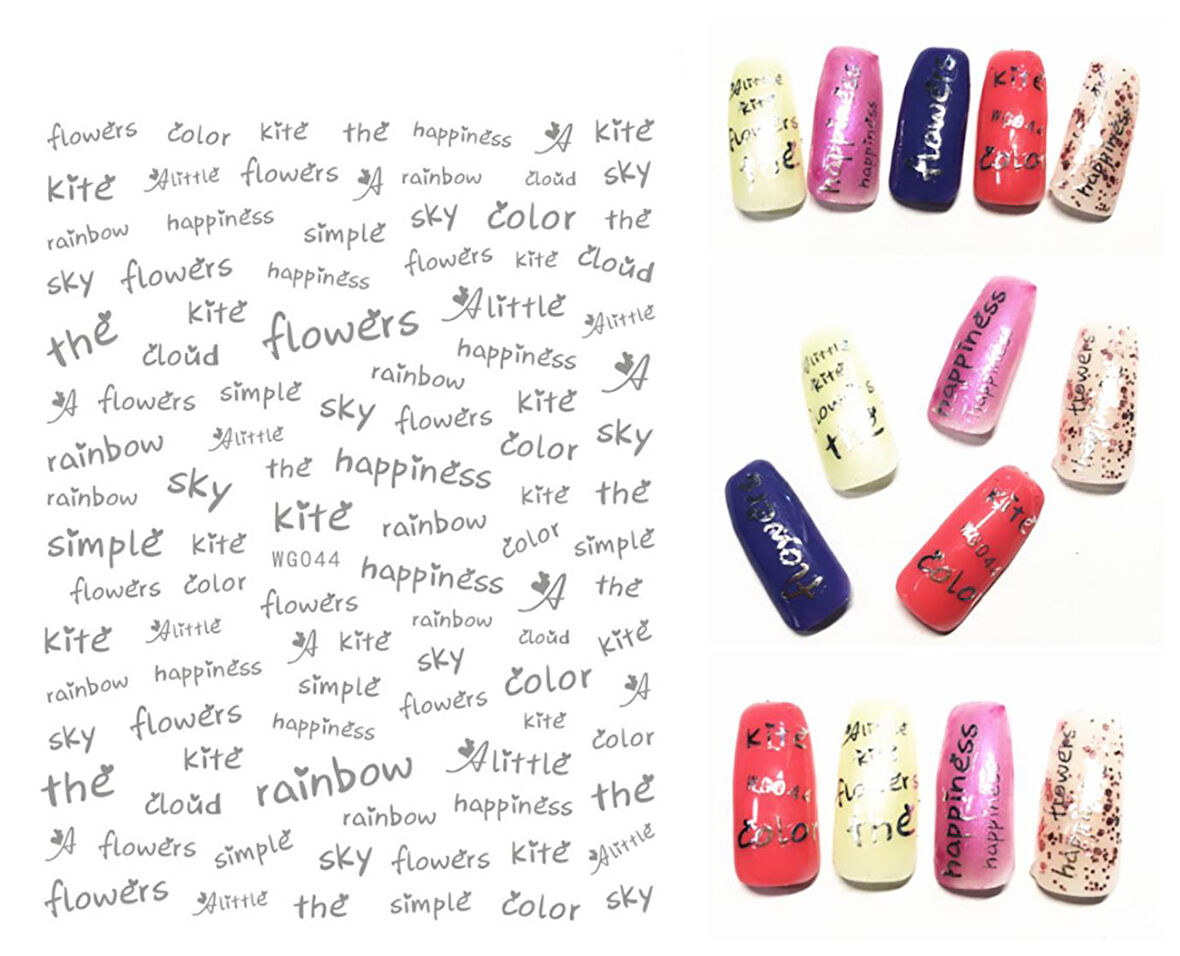 flowers color kite the happiness A kite
kite Alittle flowers A rainbow cloud sky
rainbow happiness simple sky color the
sky flowers happiness flowers kite cloud
the kite flowers Alittle Alittle
cloud rainbow happiness A
A flowers simple sky flowers kite
rainbow Alittle the happiness color sky
rainbow sky kite rainbow kite the
simple kite WG044 happiness color simple
flowers color flowers A the
kite Alittle A kite rainbow cloud kite
rainbow happiness simple sky flowers color A
sky flowers happiness kite color
the kite rainbow Alittle the
cloud rainbow happiness
A flowers simple sky flowers kite Alittle
flowers Alittle the simple color sky
Alittle
kite
flowers
the
happiness
happiness
flowers
kite
WG044
color
happiness
Alittle
kite
flowers
the
happiness
happiness
flowers
happiness
flowers
kite
WG044
colo
kite
WG044
color
Alittle
kite
flowers
the
happiness
happiness
flowers
happiness